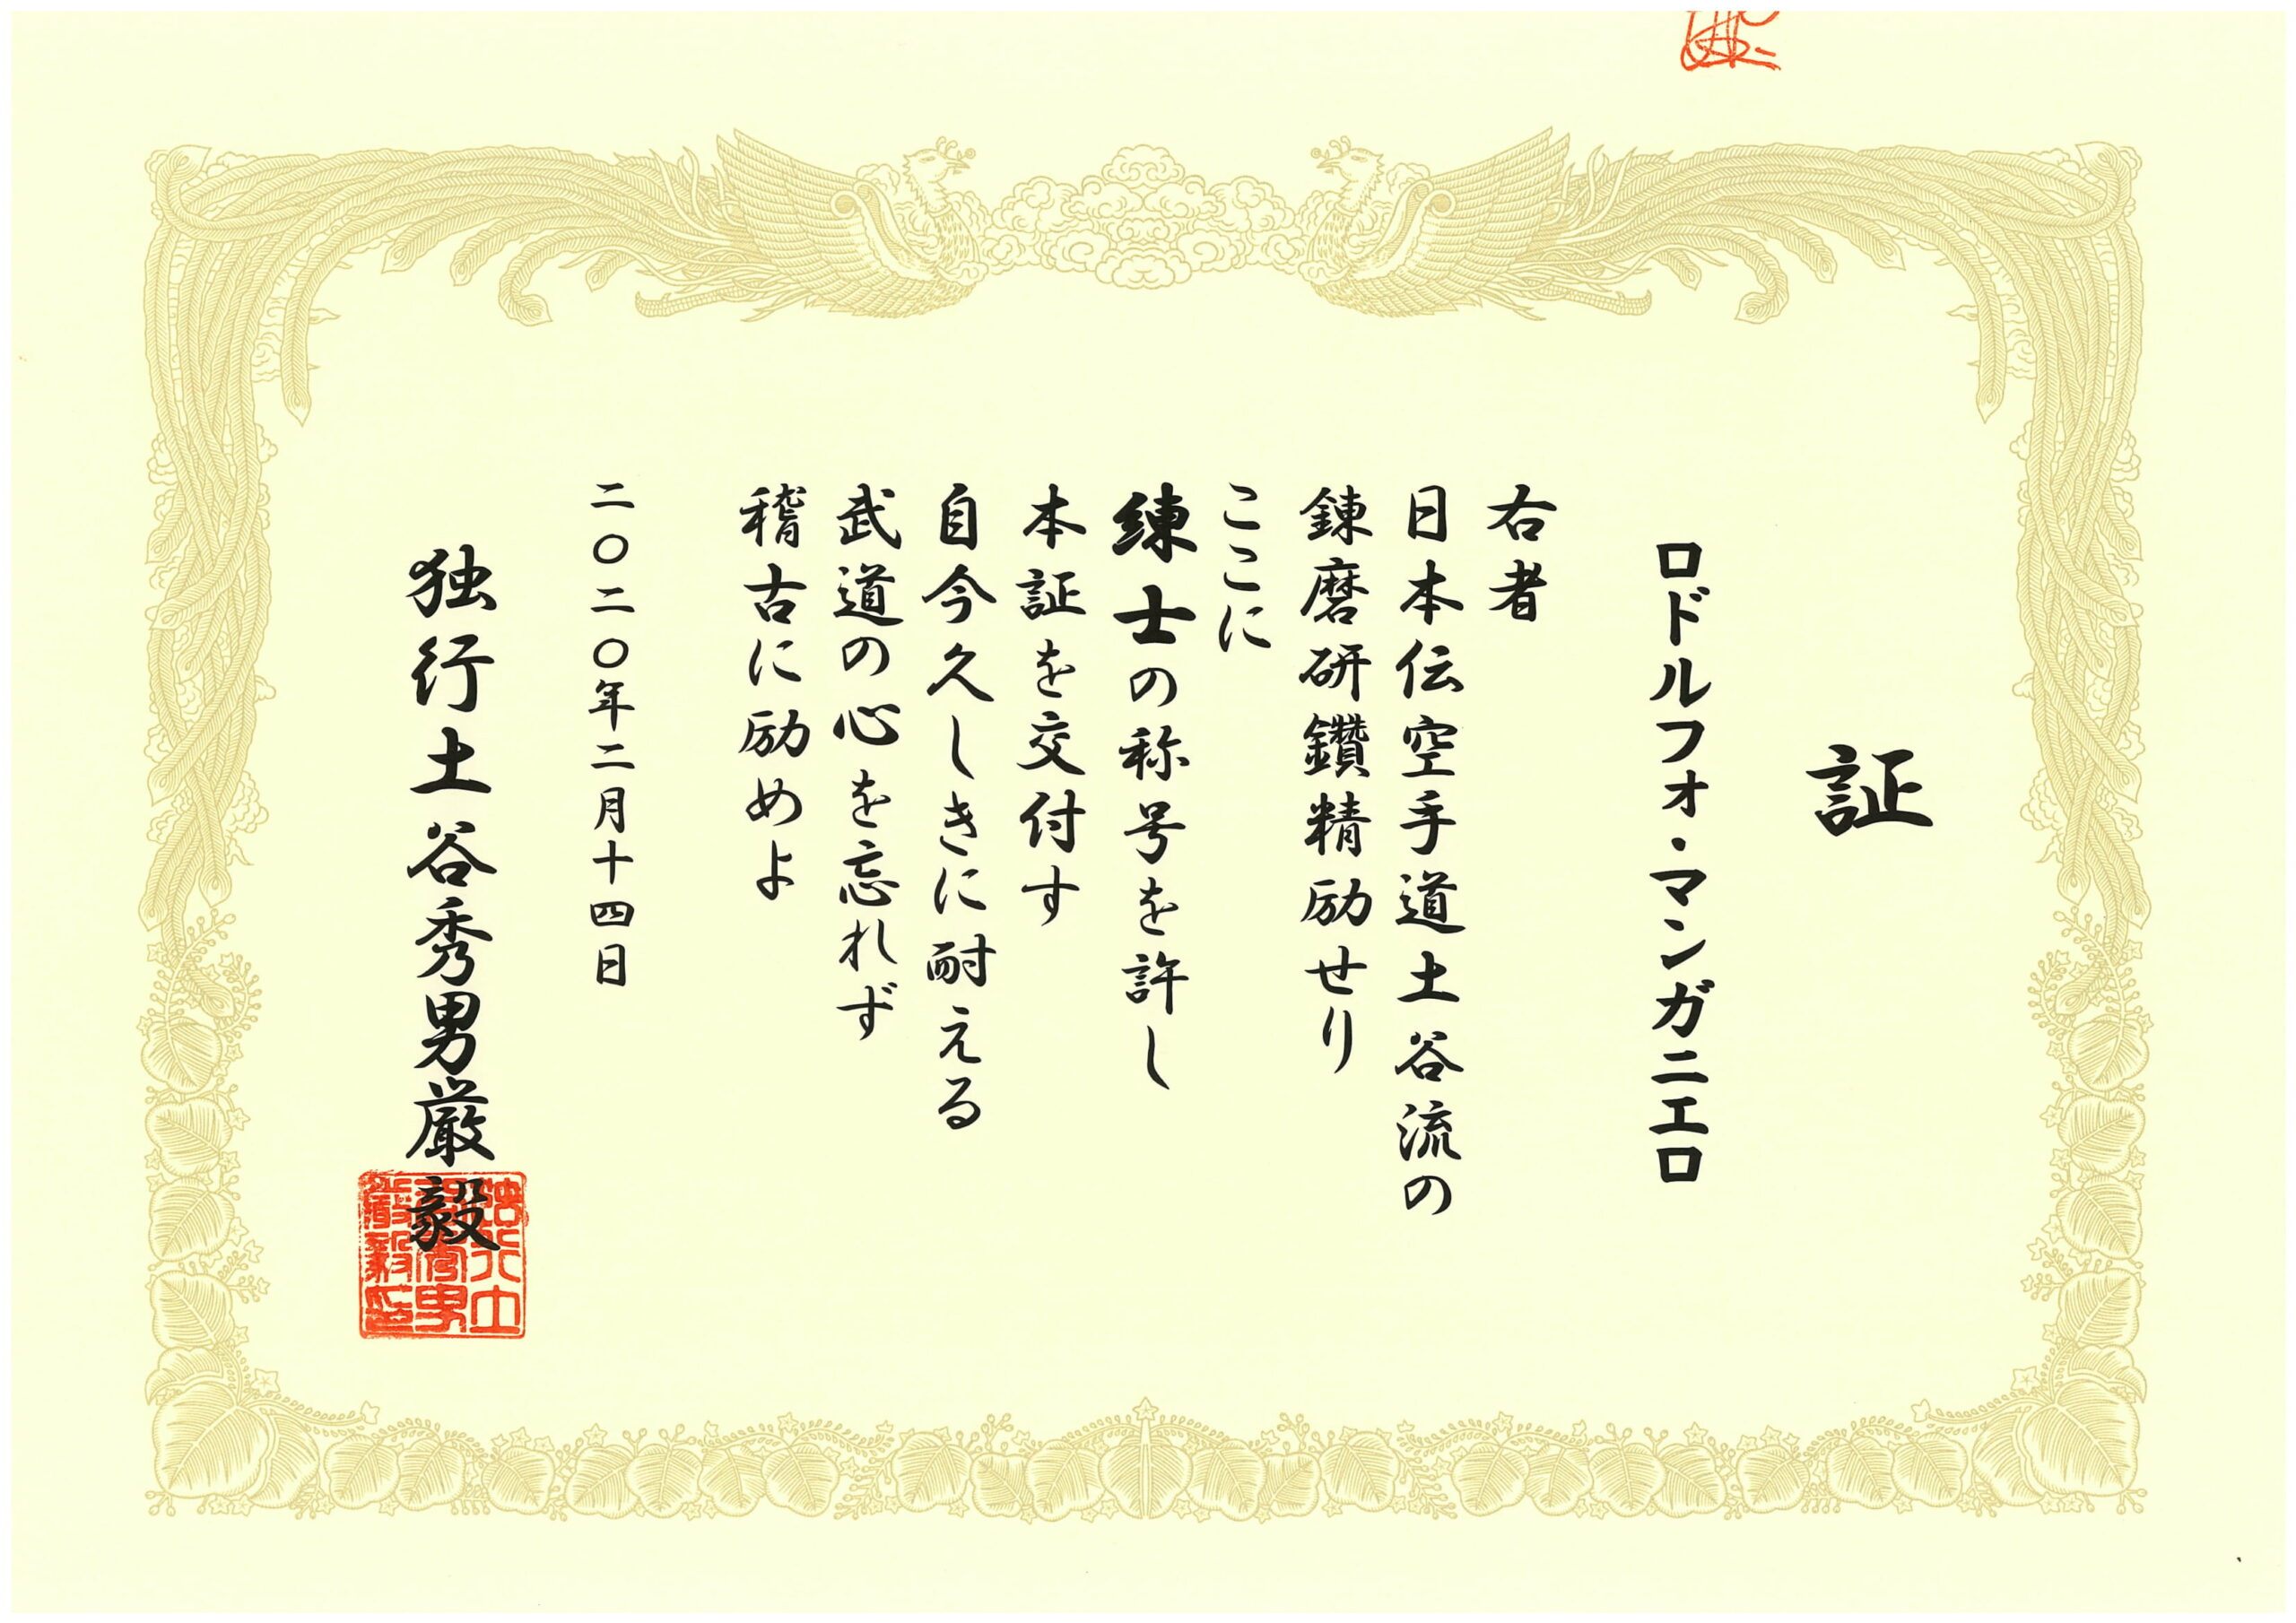 証
ロドルフォ・マンガニエロ
右者
日本伝空手道土谷流の
錬磨研鑽精励せり
ここに
練士の称号を許し
本証を交付す
自今久しきに耐える
武道の心を忘れず
稽古に励めよ
二〇二〇年二月十四日
独行土谷秀男厳毅